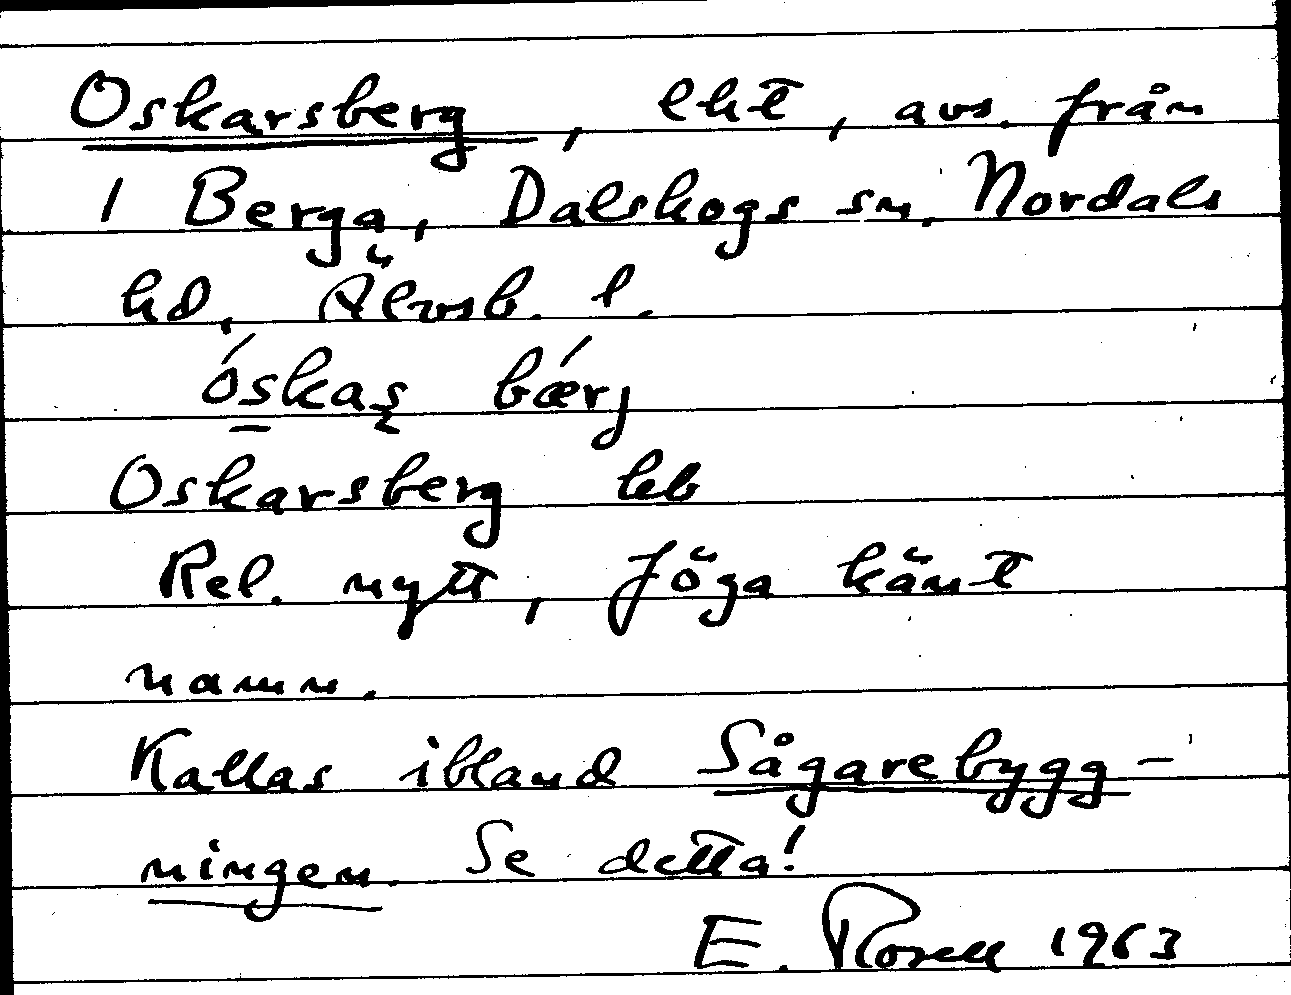 Oskarsberg, lht, avs. från
1 Berga, Dalskogs sn. Nordals
hd, Älvsb. l.
óskaş bǽrj
Oskarsberg hb
Rel. nytt, föga känt
namn.
Kallas ibland Sågarebygg-
ningen. Se detta!
E. Rosell 1963